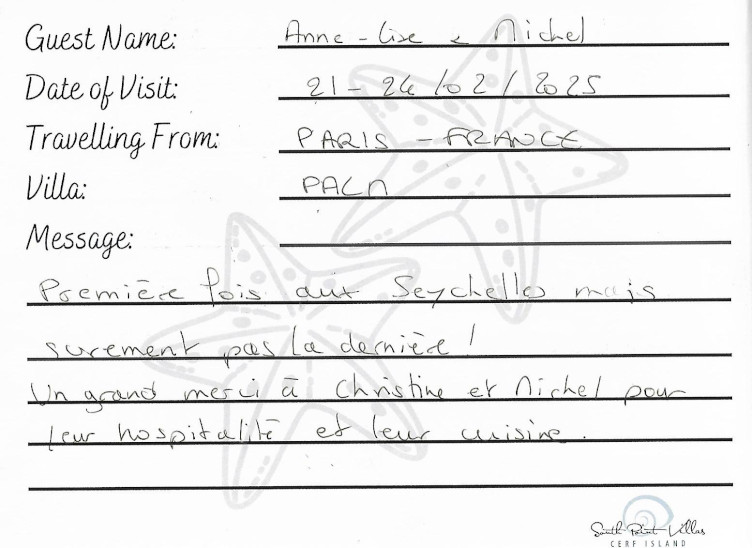 Guest Name: Anne-Lise & Michel
Date of Visit: 21-24/02/2025
Travelling From: PARIS - FRANCE
Villa: PALM
Message:
Première fois aux Seychelles mais
surement pas la dernière !
Un grand merci à Christine et Michel pour
leur hospitalité et leur cuisine.
South Point Villas
CERF ISLAND